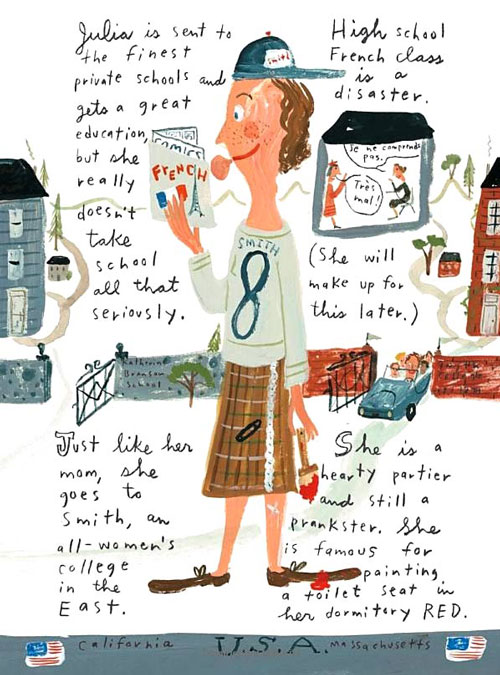 Julia is sent to
the finest
private schools and
gets a great
education,
but she
really
doesn't
take
school
all that
seriously.
High school
French class
is a
disaster.
SMITH
COMICS
FRENCH
Je ne comprends
pas.
Très
mal!
(She will
make up for
this later.)
SMITH
8
Katherine
Branson
School
Just like her
mom, she
goes to
Smith, an
all-women's
college
in the
East.
She is a
hearty partier
and still a
prankster. She
is famous for
painting
a toilet seat in
her dormitory RED.
California U.S.A. Massachusetts